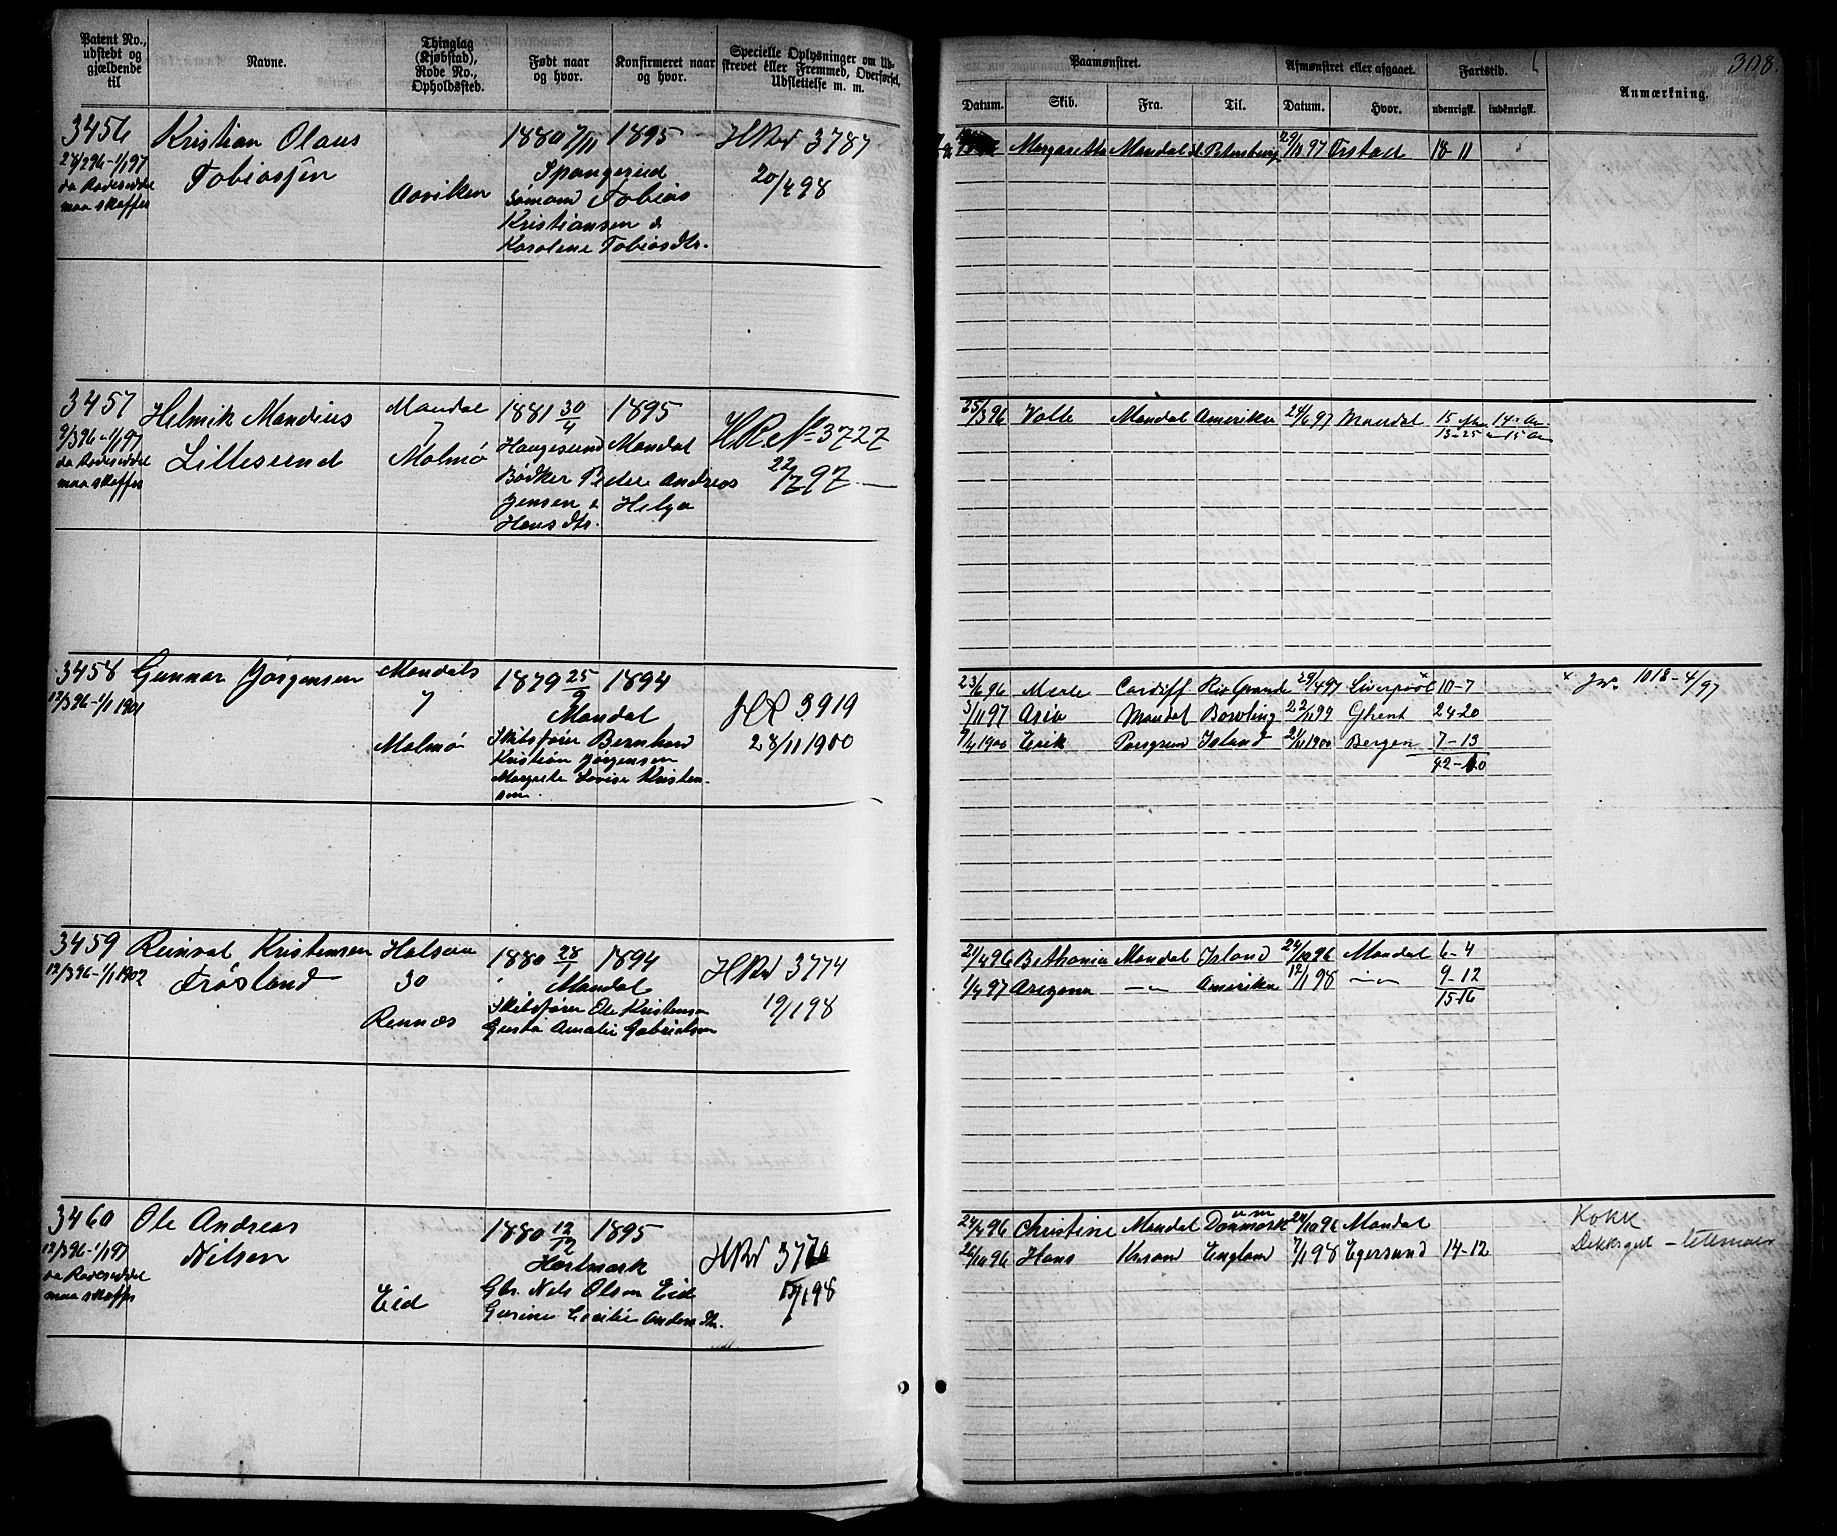 308.
Patent No., udstedt og gjældende til
Navne.
Thinglag (Kjøbstad), Rode No., Opholdssted.
Født naar og hvor.
Konfirmeret naar og hvor.
Specielle Oplysninger om Udskrevet eller Fremmed, Overførsel, Udslettelse m. m.
Paamønstret.
Afmønstret eller afgaaet.
Fartstid.
Anmærkning.
Datum.
Skib.
Fra.
Til.
Datum.
Hvor.
udenrigsk.
indenrigsk.
3456
28/2 96-1/1 97
da Rodeseddel
maa skaffes
Kristian Olaus
Tobiassen
Aaviken
1880 7/11
1895
Spangereid
Sømand Tobias
Kristiansen &
Karoline Tobiasdtr.
HRd 3787
20/4 98
Margaretha Mandal St. Petersburg 29/11 97 18-11
3457
9/3 96-1/1 97
da Rodeseddel
maa skaffes
Helmik Mandius
Lillesund
Mandal
7
Malmø
1881 30/4 1895
Haugesund Mandal
Bødker Peder Andreas
Jensen & Helga
Hansdtr.
HRd No 3727
22/7 97 —
25/3 96 Valle Mandal Amerika 24/6 97 Mandal
3458
12/3 96-1/1 1901
Gunnar Jørgensen
Mandals
7
Malmø
1879 25/9 1894
Mandal
Skibsfører Bernhard
Kristian Jørgensen
Margrete Lovise Kristen-
sen.
HR 3919
28/11 1900
23/6 96 Cardiff Rio Grande 29/4 97 Liverpool 10-7
3/11 97 Asia Mandal Bowling 22/11 99 Ghent 24-20
9/4 1900 Erik Porsgrund Island 21/11 1900 Bergen 7-13
42-10
1018-4/97
3459
12/3 96-1/1 1902
Reinval Kristensen
Frøsland
Halsaa
30
Rennæs
1880 28/1 1894
Mandal
Skibsfører Ole Kristensen
Gusta Amalie Gabrielsen
HRd 3774
19/1 98
21/4 96 Bethania Mandal Island 24/10 96 Mandal 6-4
1/4 97 Arizona —"— Amerika 12/1 98 —"— 9-12
15-16
3460
12/3 96-1/1 97
da Rodeseddel
maa skaffes
Ole Andreas
Nilsen
Eid
1880 12/12 1895
Harkmark
Gbr. Nils Olsen Eid
Gurine Cecilie Andersdtr.
HRd 3770
/1 98
24/4 96 Christine Mandal Danmark 24/10 96 Mandal
26/10 96 Hans Krsand England 7/1 98 Egersund 14-12
Kokk
Dekksgut - letmatr